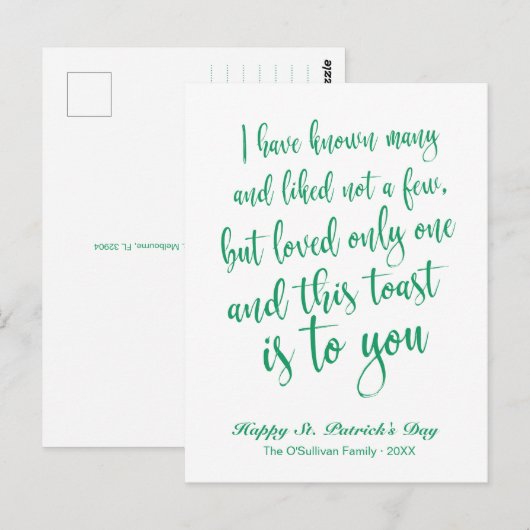 I have known many
and liked not a few,
but loved only one
and this toast
is to you
Happy St. Patrick's Day
The O'Sullivan Family · 20XX
Melbourne, FL 32904
zazzle